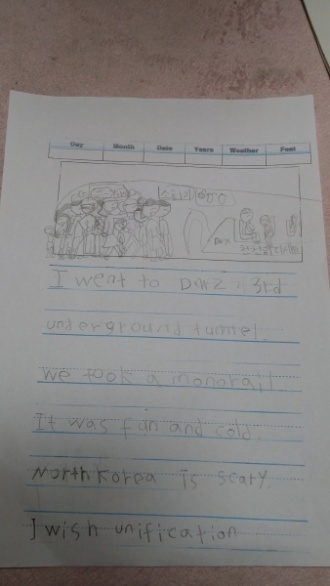 Day Month Date Years Weather Feel
DMZ
I went to DMZ 3rd
underground tunnel.
we took a monorail.
It was fun and cold.
North Korea is scary.
I wish unification